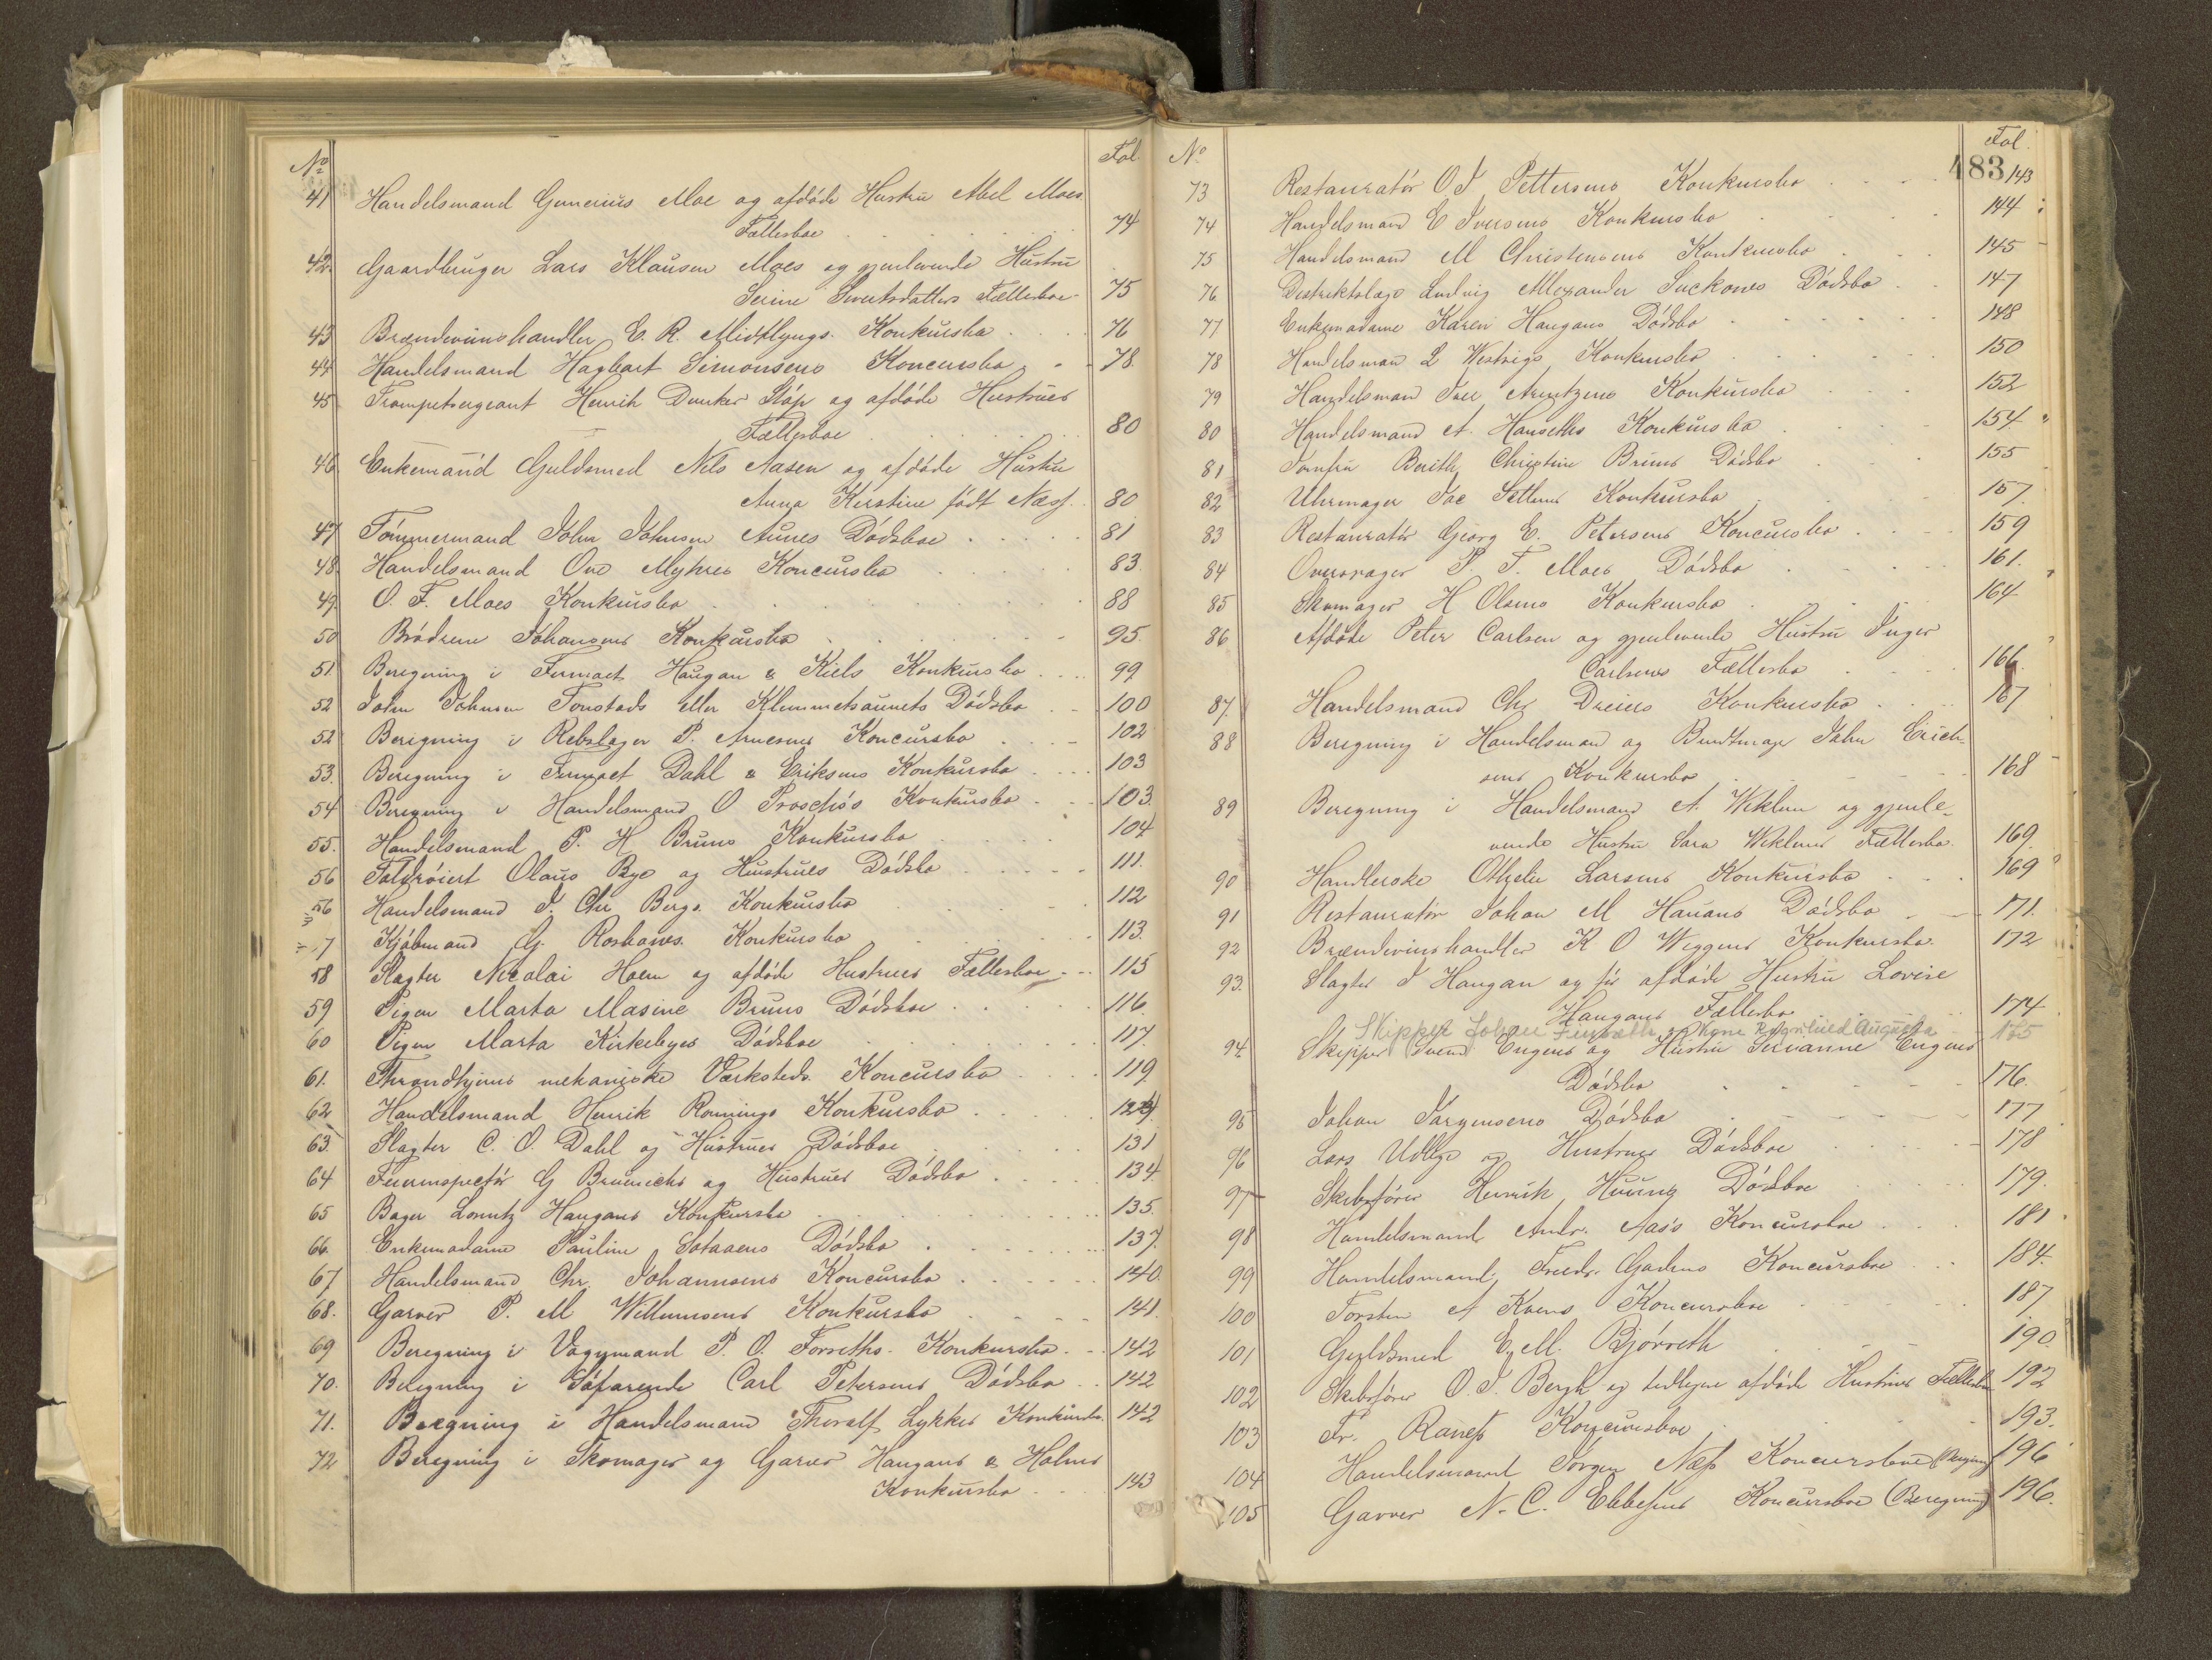 No Fol
41 Handelsmand Gunerius Moe og afdøde Hustru Abel Moes
Fællesboe 74
42. Gaardbruger Lars Klausen Moes og gjenlevende Hustru
Serine Sivertsdatters Fællesboe 75
43 Brændeviinshandler E. R. Midtlyngs. Konkursbo 76
44 Handelsmand Hagbart Simonsens Koncursbo 78.
45 Trompetsergeant Henrik Dunker Støp og afdøde Hustrues
Fællesboe 80
46 Enkemand Guldsmed Nils Aasen og afdøde Hustru
Anna Kirstine født Næss. 80
47 Tømmermand John Johnsen Aunes Dødsboe 81
48. Handelsmand Ove Myhres Koncursbo 83.
49. O. F. Moes Konkursbo 88
50 Brødrene Johansens Konkursbo 95.
51. Beregning i Firmaet Haugan & Kiels Konkursbo 99
52 John Johnsen Tonstads eller Klemmetsaunets Dødsbo 100
52 Beregning i Rebslager P. Arnesens Koncursbo 102
53. Beregning i Firmaet Dahl & Eriksens Konkursbo 103
54 Beregning i Handelsmand O Proschs's Konkursbo 103.
55. Handelsmand P. H Bruns Konkursbo 104
56 Toldrøiert Olaus Bye og Hustrues Dødsbo 111.
56 Handelsmand J. Chr Bergs. Konkursbo 112
7 Kjøbmand G. Roshaws. Konkursbo 113.
58 Slagter Nicolai Hoem og afdøde Hustrues Fællesboe 115
59 Pigen Marta Masine Bruns Dødsboe 116.
60 Pigen Marta Kirkebyes Dødsboe 117.
61. Throndhjems mekaniske Værksteds. Koncursbo 119
62 Handelsmand Henrik Rønnings Konkursbo 124.
63 Slagter C. O. Dahl og Hustrues Dødsboe 131
64 Fyrinspectør G Brunichs og Hustrues Dødsbo 134.
65 Bager Lorentz Haugans Konkursbo 135.
66. Enkemadame Pauline Sotaaens Dødsbo 137.
67 Handelsmand Chr. Johannsens Koncursbo 140.
68. Garver P. M Willumsens Konkursbo 141.
69 Beregning i Vognmand P. O. Forseths. Konkursbo. 142
70. Beregning i Søfarende Carl Petersens Dødsbo 142
71. Beregning i Handelsmand Thoralf Lykkes Konkursbo. 142
72 Beregning i Skomager og Garver Haugans & Holms
Konkursbo 143
No Fol.
483
73 Restauratør O J Pettersens Konkursbo 143
74 Handelsmand E Iversens Konkursbo 144
75 Handelsmand M Christensens Konkursbo 145
76 Distriktslæge Ludvig Alexander Suckows Dødsbo 147
77 Enkemadame Karen Haugans Dødsbo 148
78 Handelsmand L Westrigs Konkursbo 150
79 Handelsmand Iver Arentzens Konkursbo 152
80 Handelsmand A. Hanseths Konkursbo 154
81 Jomfru Berith Christine Bruns Dødsbo 155
82 Uhrmager Jac Setlums Konkursbo 157.
83 Restauratør Georg E. Petersens Koncursbo 159
84 P. T. Moes Dødsbo 161.
85 Skomager H Olsens Konkursbo 164
86 Afdøde Peter Carlsen og gjenlevende Hustru Inger
Carlsens Fællesbo 166.
87. Handelsmand Chr Dreiers Konkursbo 167
88 Beregning i Handelsmand og Bundtmager John Erich-
sens Konkursbo 168
89 Beregning i Handelsmand A. Wiklem og gjenle-
vende Hustru Sara Wiklems Fællesbo. 169.
90 Handlerske Othelie Larsens Konkursbo 169
91 Restauratør Johan M Hauans Dødsbo 171.
92 Brændevinshandler K O Wiggens Konkursbo. 172
93. Slagter J Haugan og før afdøde Hustru Lovise
Haugans Fællesbo 174
Skipper Johan og Kone Ragnhild Augusta 175
94. Skipper Svend Engens og Hustru Sirianne Engens
Dødsbo 176.
95 Johan Jørgensens Dødsbo 177
96 Lars Udbye og Hustrues Dødsboe 178
97 Skibsfører Henrik Huuns Dødsboe 179.
98 Handelsmand Andr. Aas's Koncursboe 181
99 Handelsmand Fredr. Gadens Koncursboe 184.
100 Torsten A Kvens Koncursboe 187
101 Guldsmed E. M. Bjørseth 190.
102 Skibsfører O. J. Bergh og tidligere afdøde Hustrues Fællesbo 192
103 Fr. Raness Koncursboe 193.
104 Handelsmand Jørgen Næss Koncursboe (Beregning) 196
105 Garver N. C. Ebbesens Koncursboe (Beregning) 196.